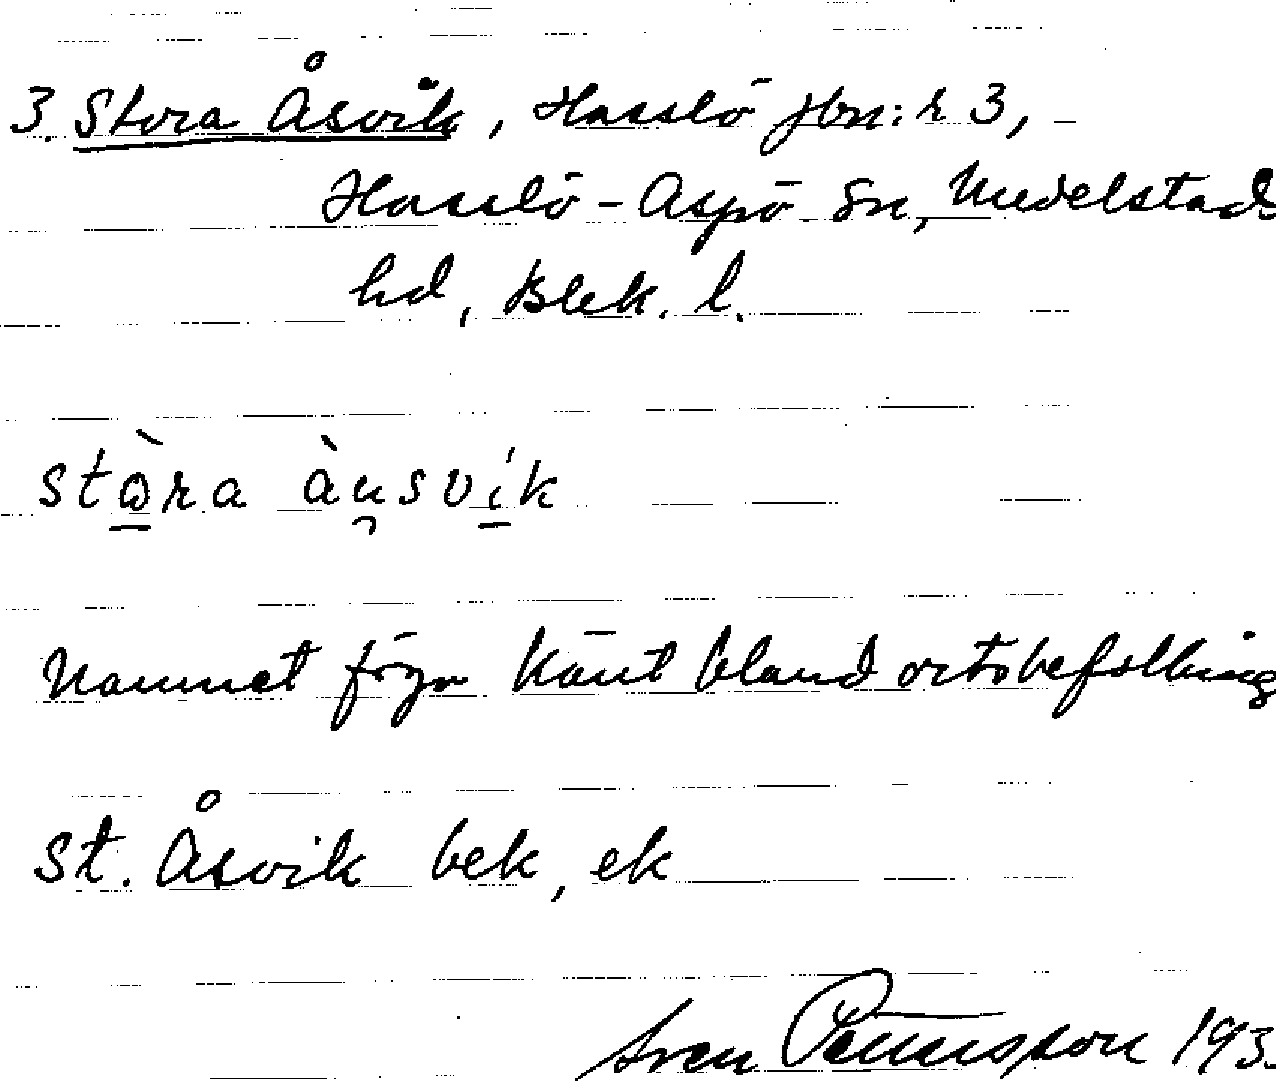 3. Stora Åsvik, Hasslö jbn:r 3,
Hasslö-Aspö sn, Medelstad
hd, Blek. l.
stòra àu̯svík
Namnet föga känt bland ortsbefolkning
St. Åsvik bek, ek
Sven 193